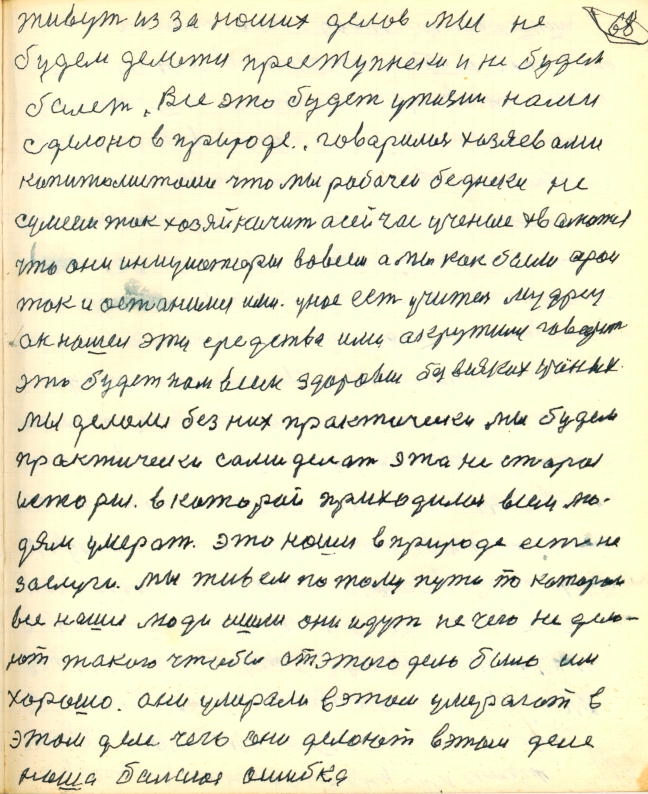 68
живут из за наших делов мы не
будем делоти преступнеки и не будем
болет. Все это будет утиази нами
сделоно в природе., говарилися хозяевами
копитолистоми что мы робачеи беднеки не
сумеем ток хозяйкичит а сейчас учение
что они инициаторы вовсем а мы как были
ток и останимся ими. у нос ест учител мудрец
он нашел эти средства ими окружили говорит
это будет нам всем здоровие без всяких ученых.
мы делоли без них практически мы будем
практически сами делат эта не старая
история. в каторой приходился всем лю-
дям умерат. это наши в природе есть не
заслуги. мы живем по тому пути по котором
все наши люди ишли они идут не чего не дело-
ют такого чтобы от этого дела было им
хорошо. они умирали в этом умерают в
этом деле чего они делоют в этом деле
наша балшая ошибка